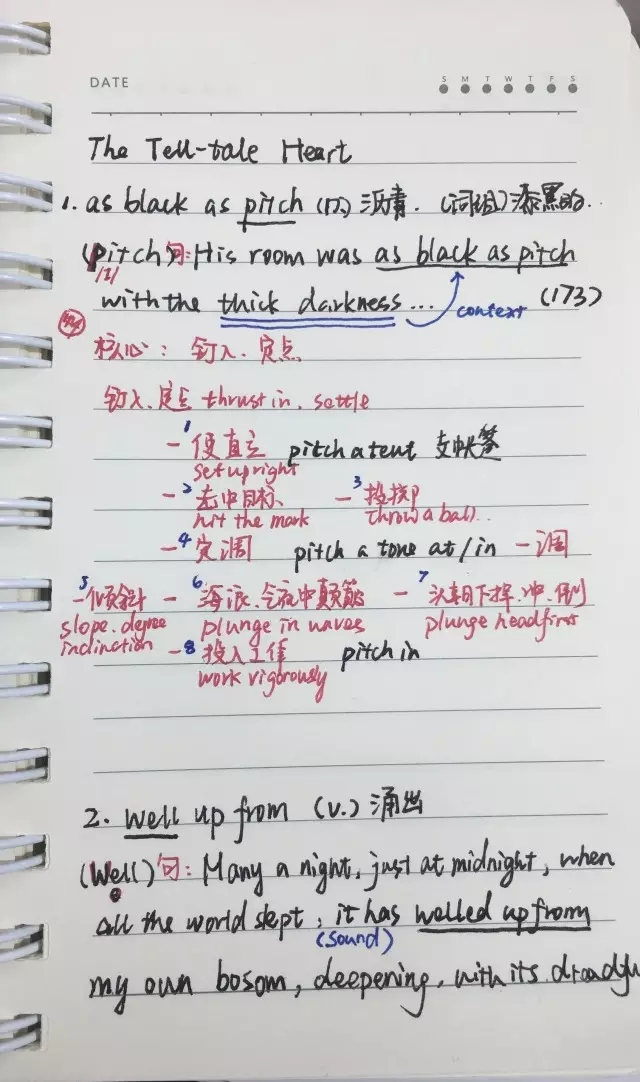 DATE S M T W T F S
The Tell-tale Heart
1. as black as pitch (n) 沥青. (词组)漆黑的.
(pitch) 句: His room was as black as pitch
/I/
with the thick darkness ... context (173)
核心: 钉入. 定点
钉入. 定点 thrust in. settle
- 1 使直立 pitch a tent 支帐篷
set upright
- 2 击中目标 - 3 投掷
hit the mark throw a ball.
- 4 定调 pitch a tone at/in 一调
5 - 倾斜 - 6 海浪. 中颠簸 - 7 头朝下摔. 冲. 倒
slope. degree plunge in waves plunge headfirst
inclination
- 8 投入工作 pitch in
work vigorously
2. well up from (v.) 涌出
(well) 句: Many a night, just at midnight, when
all the world slept, it has welled up from
(sound)
my own bosom, deepening, with its